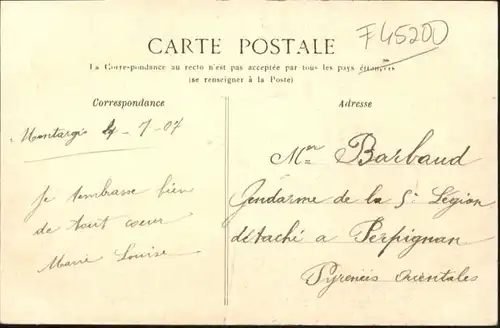 F45200
CARTE POSTALE
La Correspondance au recto n'est pas acceptée par tous les pays étrangers
(se renseigner à la Poste)
Correspondance
Montargis 4-7-07
Je t'embrasse bien
de tout coeur
Marie Louise
Adresse
Mer Barbaud
Gendarme de la 5e Légion
détaché a Perpignan
Pyrenéis Orientales